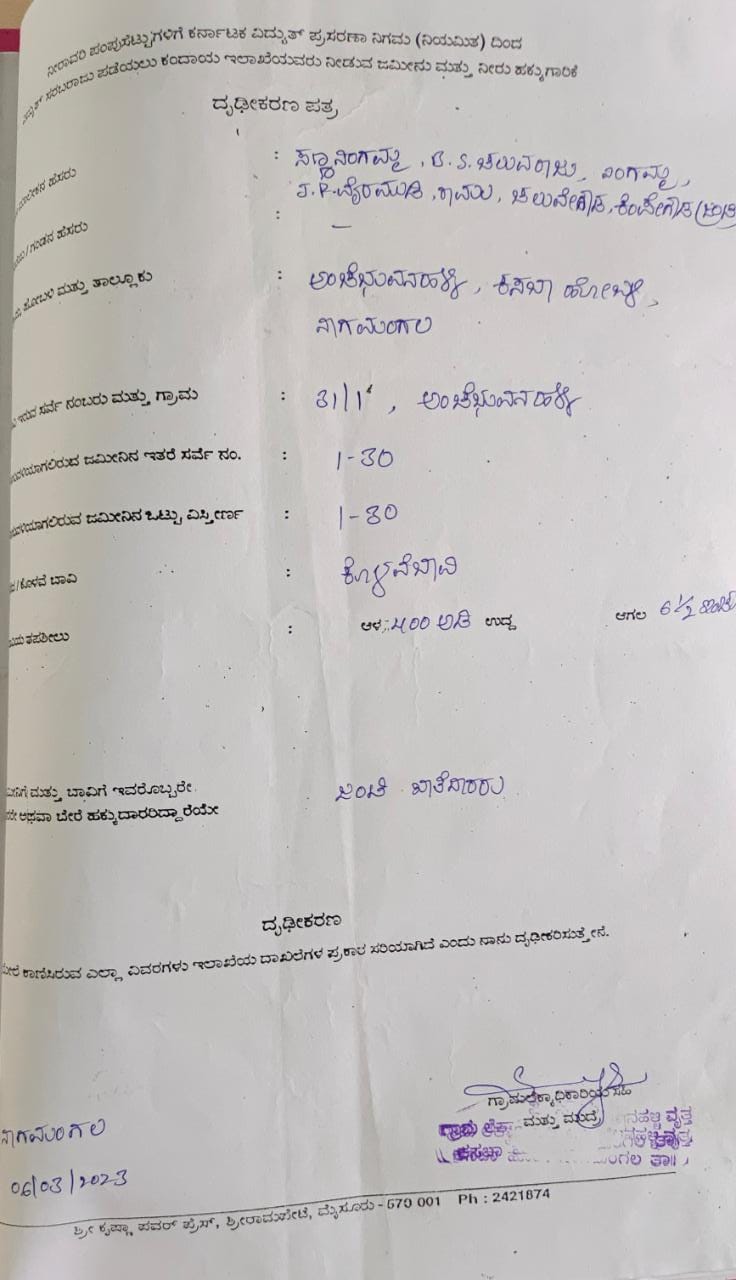 ನೀರಾವರಿ ಪಂಪುಸೆಟ್ಟುಗಳಿಗೆ ಕರ್ನಾಟಕ ವಿದ್ಯುತ್ ಪ್ರಸರಣಾ ನಿಗಮ (ನಿಯಮಿತ) ದಿಂದ
ಸರಬರಾಜು ಪಡೆಯಲು ಕಂದಾಯ ಇಲಾಖೆಯವರು ನೀಡುವ ಜಮೀನು ಮತ್ತು ನೀರು ಹಕ್ಕುಗಾರಿಕೆ
ದೃಢೀಕರಣ ಪತ್ರ
ಹೆಸರು : ಸಣ್ಣನಿಂಗಮ್ಮ, B.S. ಚಲುವರಾಜು, ನಿಂಗಮ್ಮ,
J.P. ವೈರಮುಡಿ, ರಾಮು, ಚಲುವೇಗೌಡ, ಕೆಂಪೇಗೌಡ (ಜಂಟಿ)
/ಗಂಡನ ಹೆಸರು : –
ಹೋಬಳಿ ಮತ್ತು ತಾಲ್ಲೂಕು : ಅಂಚೆಭುವನಹಳ್ಳಿ, ಕಸಬಾ ಹೋಬಳಿ,
ನಾಗಮಂಗಲ
ಇರುವ ಸರ್ವೆ ನಂಬರು ಮತ್ತು ಗ್ರಾಮ : 31/1, ಅಂಚೆಭುವನಹಳ್ಳಿ
ಜಮೀನಿನ ಇತರೆ ಸರ್ವೆ ನಂ. : 1-30
ಜಮೀನಿನ ಒಟ್ಟು ವಿಸ್ತೀರ್ಣ : 1-30
/ಕೊಳವೆ ಬಾವಿ : ಕೊಳವೆಬಾವಿ
ತಪಶೀಲು : ಆಳ : 400 ಅಡಿ ಉದ್ದ ಅಗಲ 6 ½ ಇಂಚು
ಮತ್ತು ಬಾವಿಗೆ ಇವರೊಬ್ಬರೇ
ಅಥವಾ ಬೇರೆ ಹಕ್ಕುದಾರರಿದ್ದಾರೆಯೇ ಜಂಟಿ ಖಾತೆದಾರರು
ದೃಢೀಕರಣ
ಮೇಲೆ ಕಾಣಿಸಿರುವ ಎಲ್ಲಾ ವಿವರಗಳು ಇಲಾಖೆಯ ದಾಖಲೆಗಳ ಪ್ರಕಾರ ಸರಿಯಾಗಿದೆ ಎಂದು ನಾನು ದೃಢೀಕರಿಸುತ್ತೇನೆ.
ಗ್ರಾಮಲೆಕ್ಕಾಧಿಕಾರಿಯ ಸಹಿ
ಮತ್ತು ಮುದ್ರೆ
ನಾಗಮಂಗಲ
06/03/2023
ಶ್ರೀ ಕೃಷ್ಣಾ ಪವರ್ ಪ್ರೆಸ್, ಶ್ರೀರಾಮಪೇಟೆ, ಮೈಸೂರು - 570 001 Ph : 2421874